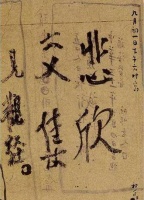 九月初一日下午六時寫
悲欣
交集
見觀經